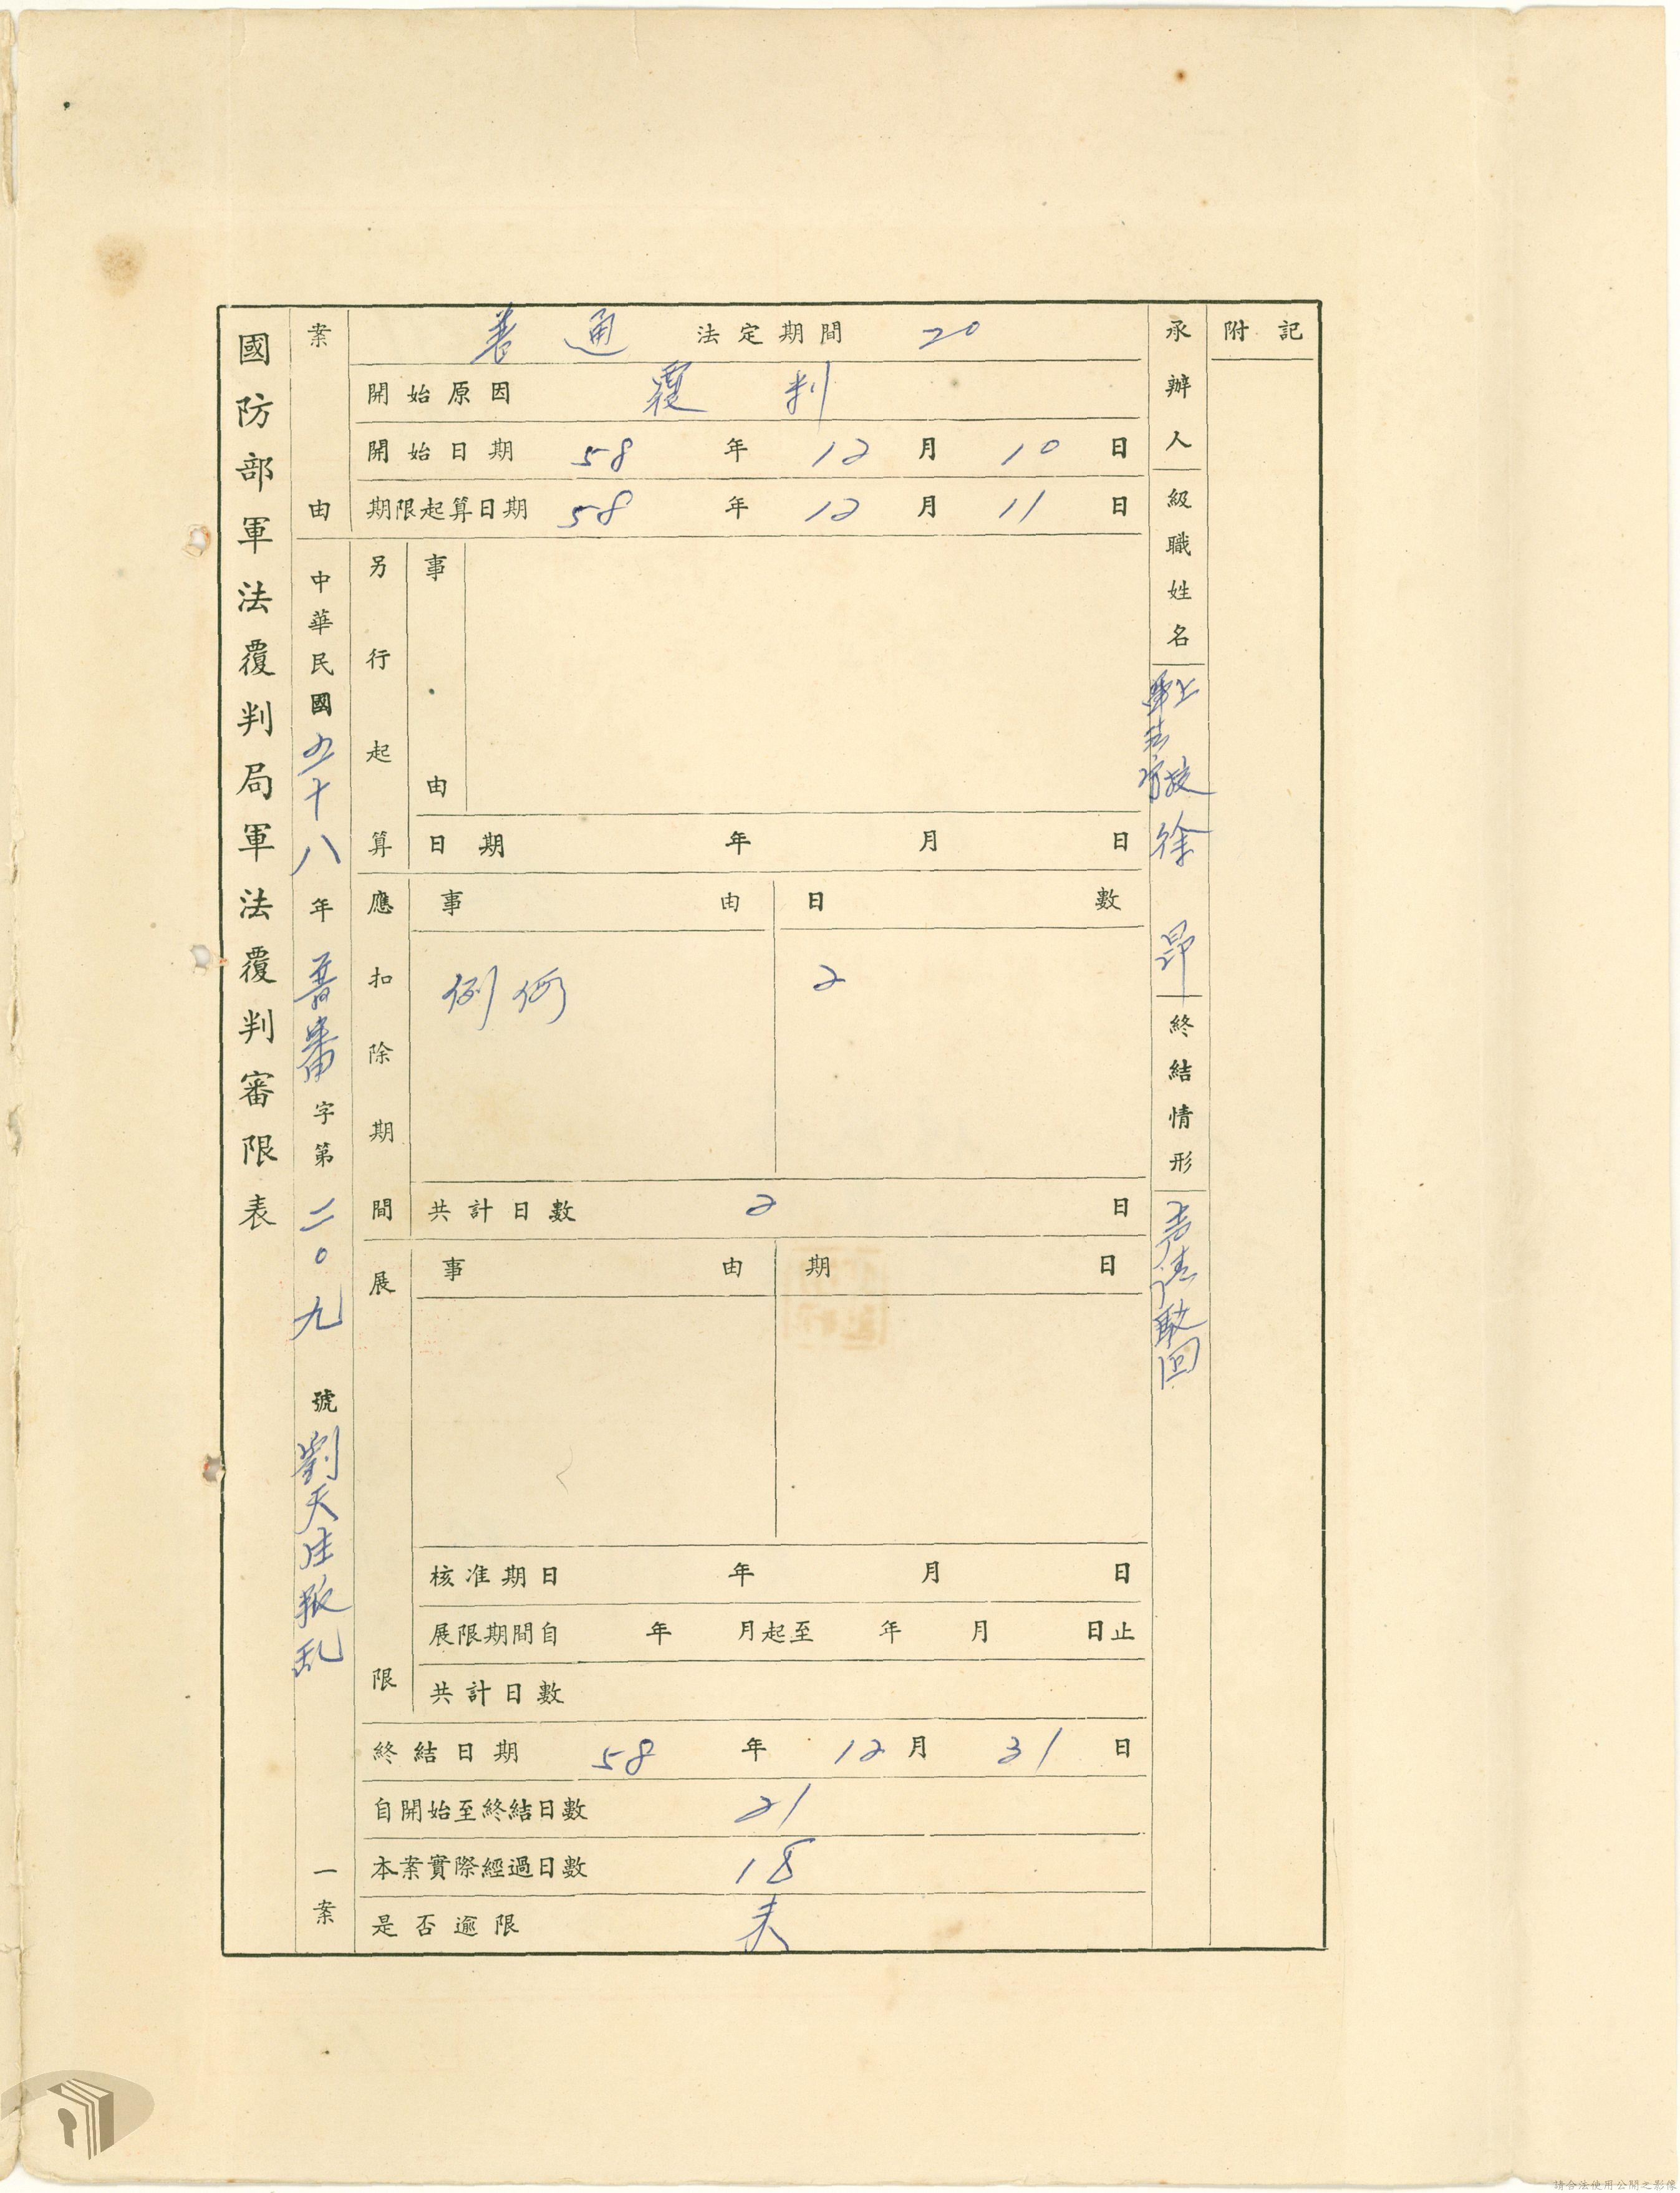 國防部軍法覆判局軍法覆判審限表
案由
中華民國五十八年普審字第二〇九號劉天生叛乱一案
普通 法定期間 20
開始原因 覆判
開始日期 58年12月10日
期限起算日期 58年12月11日
另行起算
事由
日期 年 月 日
應扣除期間
事由 日數
例假 2
共計日數 2日
展限
事由 期日
核准期日 年 月 日
展限期間自 年 月起至 年 月 日止
共計日數
終結日期 58年12月31日
自開始至終結日數 21
本案實際經過日數 18
是否逾限 未
承辦人級職姓名
徐昂
終結情形
聲請駁回
附記
請合法使用公開之影像